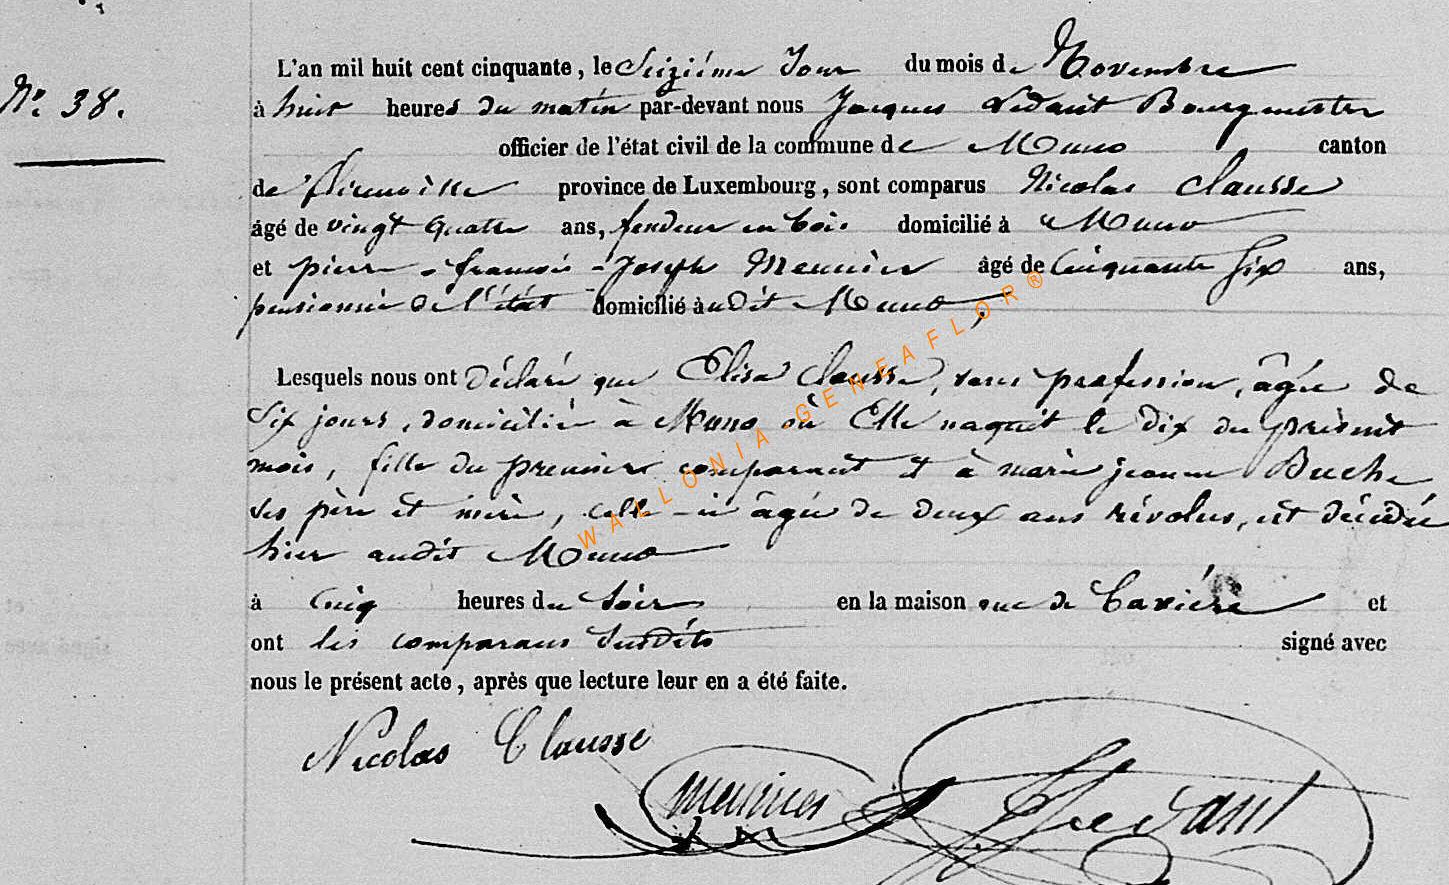 N.° 38.
L'an mil huit cent cinquante, le Seizième Jour du mois de Novembre
à huit heures du matin par-devant nous Jacques Ledant Bourgmestre
officier de l'état civil de la commune de Muno canton
de florenville province de Luxembourg, sont comparus Nicolas Clausse
âgé de vingt quatre ans, fendeur en bois domicilié à Muno
et pierre-françois-Joseph Meunier âgé de Cinquante six ans,
pensionné de l'état domicilié audit Muno,
Lesquels nous ont déclaré que Elisa Clausse, sans profession, âgée de
six jours, domiciliée à Muno où Elle naquit le dix du présent
mois, fille du premier comparant et à marie jeanne Buche
ses père et mère, celle-ci âgée de deux ans révolus, est décédée
hier audit Muno
à Cinq heures du soir en la maison rue de Bavière et
ont les comparans susdits signé avec
nous le présent acte, après que lecture leur en a été faite.
Nicolas Clausse
Meunier
JLedant
WALLONIA-GENEAFLOR®